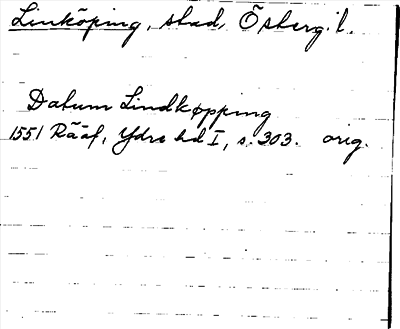 Linköping, stad, Österg. l.
Datum Lindkøpping
1551 Rääf, Ydre hd I, s. 303. orig.